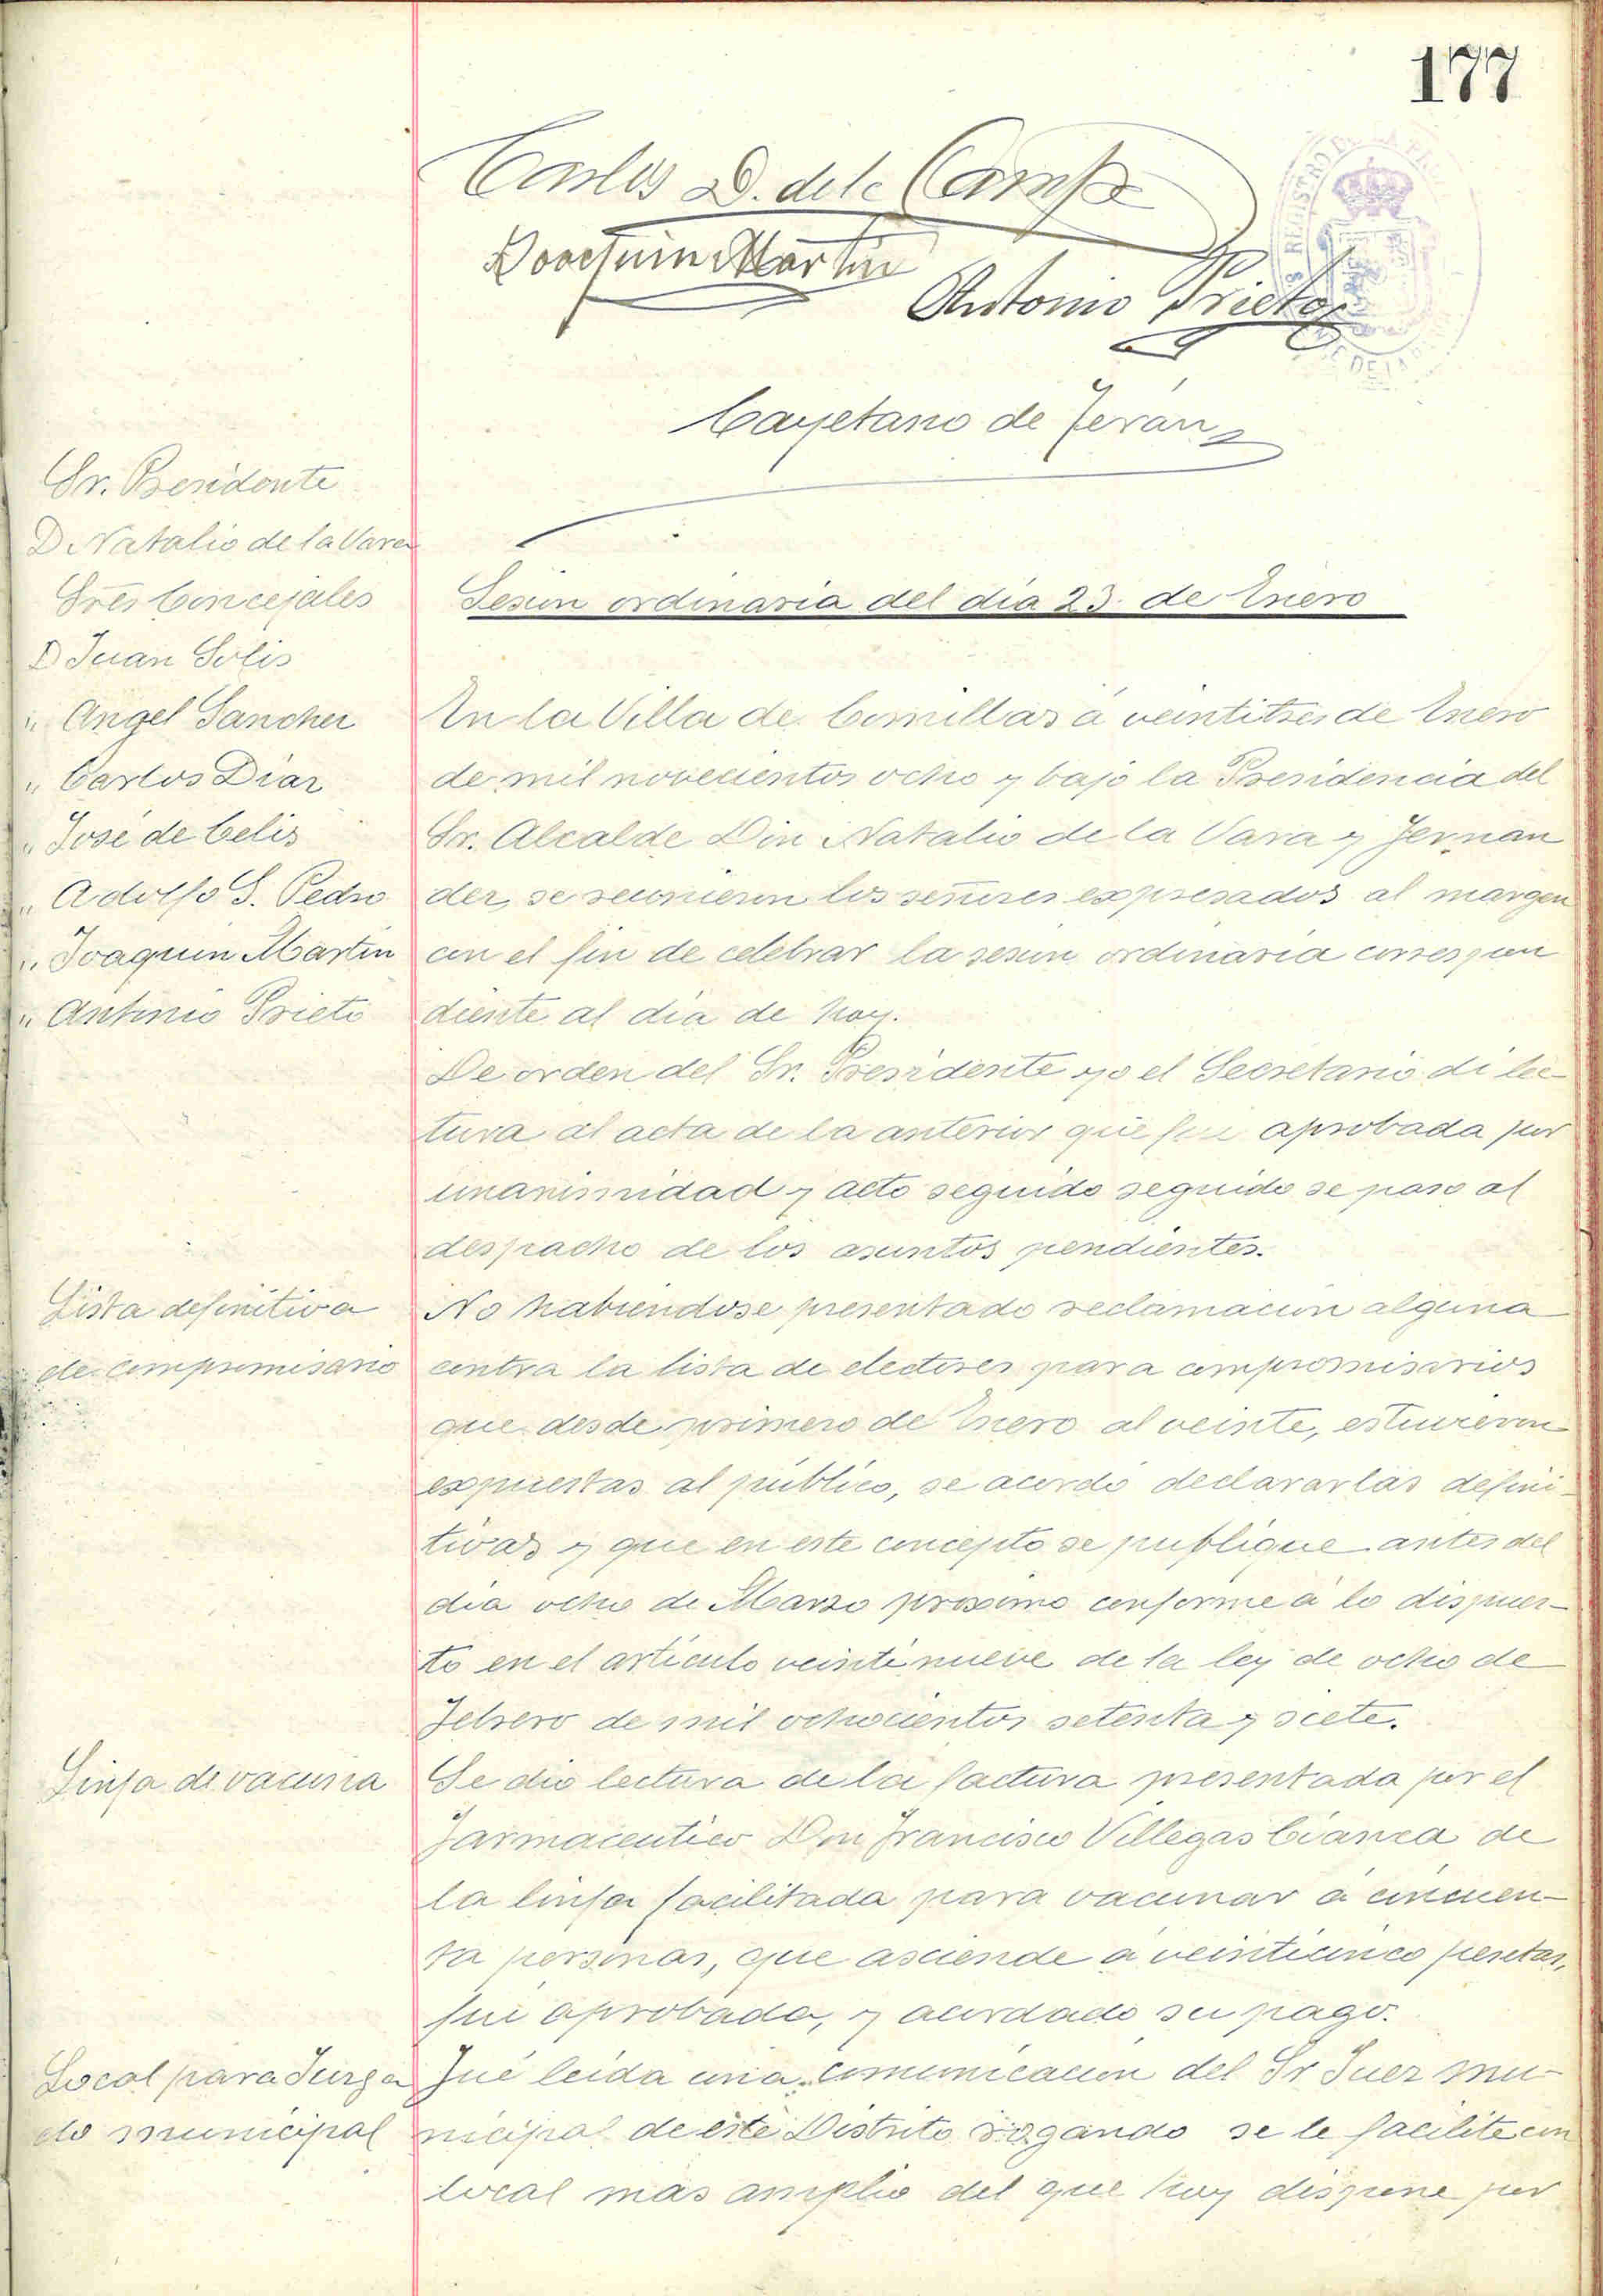 177
Carlos D. de la Campa
Joaquin Martin
Antonio Prieto
Cayetano de Terán
Sr. Presidente
D. Natalio de la Vara
Sres Concejales
D Juan Solis
" Angel Sanchez
" Carlos Diaz
" José de Celis
" Adolfo S. Pedro
" Joaquin Martin
" Antonio Prieto
Sesion ordinaria del dia 23 de Enero
En la Villa de Comillas á veintitres de Enero
de mil novecientos ocho y bajo la Presidencia del
Sr. Alcalde Don Natalio de la Vara y Fernan
dez, se reunieron los señores expresados al margen
con el fin de celebrar la sesion ordinaria correspon
diente al dia de hoy.
De orden del Sr. Presidente yo el Secretario di lec-
tura al acta de la anterior que fue aprobada por
unanimidad y acto seguido seguido se paso al
despacho de los asuntos pendientes.
Lista definitiva
de compromisario
No habiendose presentado reclamacion alguna
contra la lista de electores para compromisarios
que desde primero de Enero al veinte, estuvieron
expuestas al público, se acordó declararlas defini-
tivas y que en este concepto se publique antes del
dia ocho de Marzo proximo conforme á lo dispues-
to en el articulo veintinueve de la ley de ocho de
Febrero de mil ochocientos setenta y siete.
Linfa de vacuna
Se dio lectura de la factura presentada por el
Farmaceutico Don Francisco Villegas Cianca de
la linfa facilitada para vacunar á cincuen-
ta personas, que asciende á veinticinco pesetas,
fué aprobada, y acordado su pago.
Local para Juzga
do municipal
Fué leida una comunicacion del Sr Juez mu-
nicipal de este Distrito rogando se le facilite un
local mas amplio del que hoy dispone por